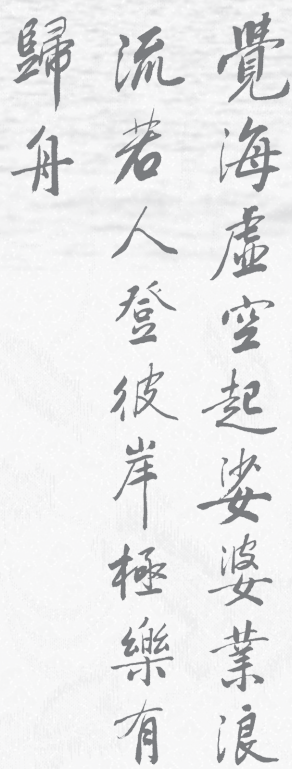 覺海虛空起娑婆業浪
流若人登彼岸極樂有
歸舟